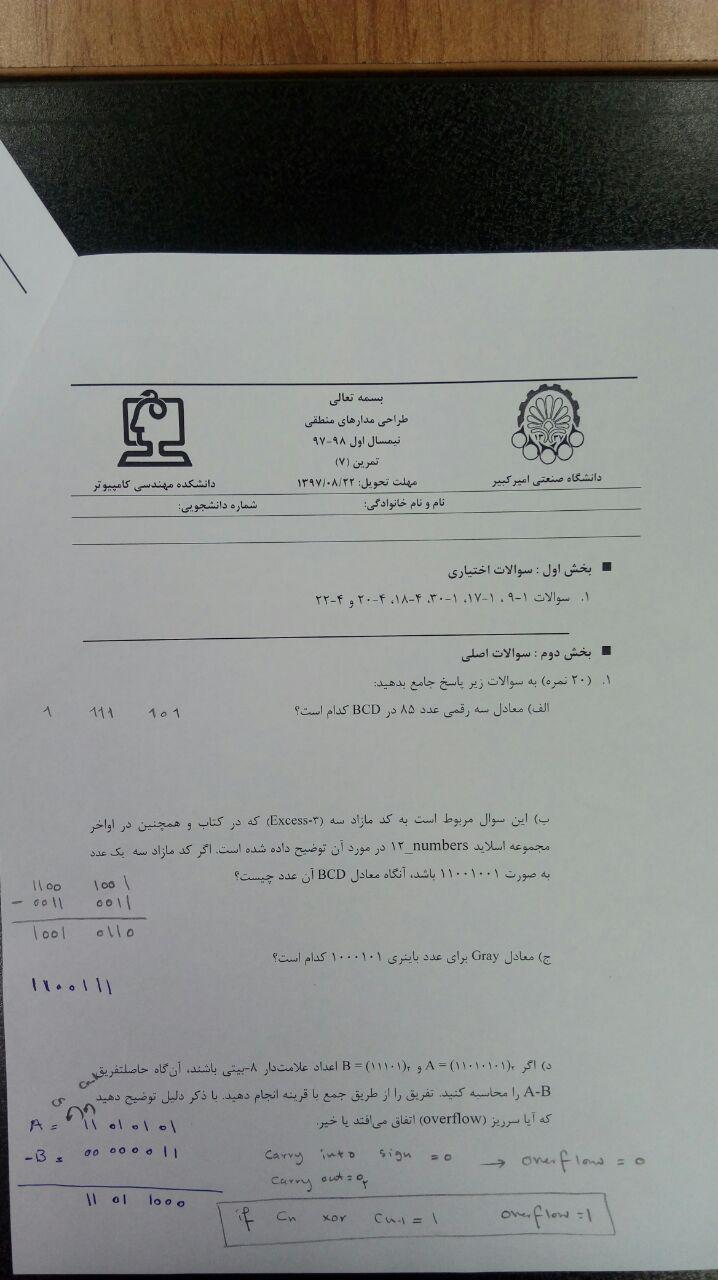 بسمه تعالی
طراحی مدارهای منطقی
نیمسال اول ۹۸-۹۷
تمرین (۷)
مهلت تحویل: ۱۳۹۷/۰۸/۲۲
۱۳ ۳۷
دانشگاه صنعتی امیرکبیر
دانشکده مهندسی کامپیوتر
نام و نام خانوادگی:
شماره دانشجویی:
■ بخش اول : سوالات اختیاری
۱. سوالات ۱-۹ ، ۱-۱۷، ۱-۳۰، ۴-۱۸، ۴-۲۰ و ۴-۲۲
■ بخش دوم : سوالات اصلی
۱. (۲۰ نمره) به سوالات زیر پاسخ جامع بدهید:
الف) معادل سه رقمی عدد ۸۵ در BCD کدام است؟
1 111 101
ب) این سوال مربوط است به کد مازاد سه (Excess-۳) که در کتاب و همچنین در اواخر
مجموعه اسلاید ۱۲_numbers در مورد آن توضیح داده شده است. اگر کد مازاد سه یک عدد
به صورت ۱۱۰۰۱۰۰۱ باشد، آنگاه معادل BCD آن عدد چیست؟
1100 1001
- 0011 0011
1001 0110
ج) معادل Gray برای عدد باینری ۱۰۰۰۱۰۱ کدام است؟
1100111
د) اگر A = (۱۱۰۱۰۱۰۱)۲ و B = (۱۱۱۰۱)۲ اعداد علامت‌دار ۸-بیتی باشند، آن‌گاه حاصلتفریق
A-B را محاسبه کنید. تفریق را از طریق جمع با قرینه انجام دهید. با ذکر دلیل توضیح دهید
که آیا سرریز (overflow) اتفاق می‌افتد یا خیر.
Cn Cn-1
A = 11 01 01 01
-B = 00 0000 11
11 01 1000
Carry into sign = 0 → overflow = 0
Carry out = 0
if Cn xor Cn-1 = 1 overflow = 1